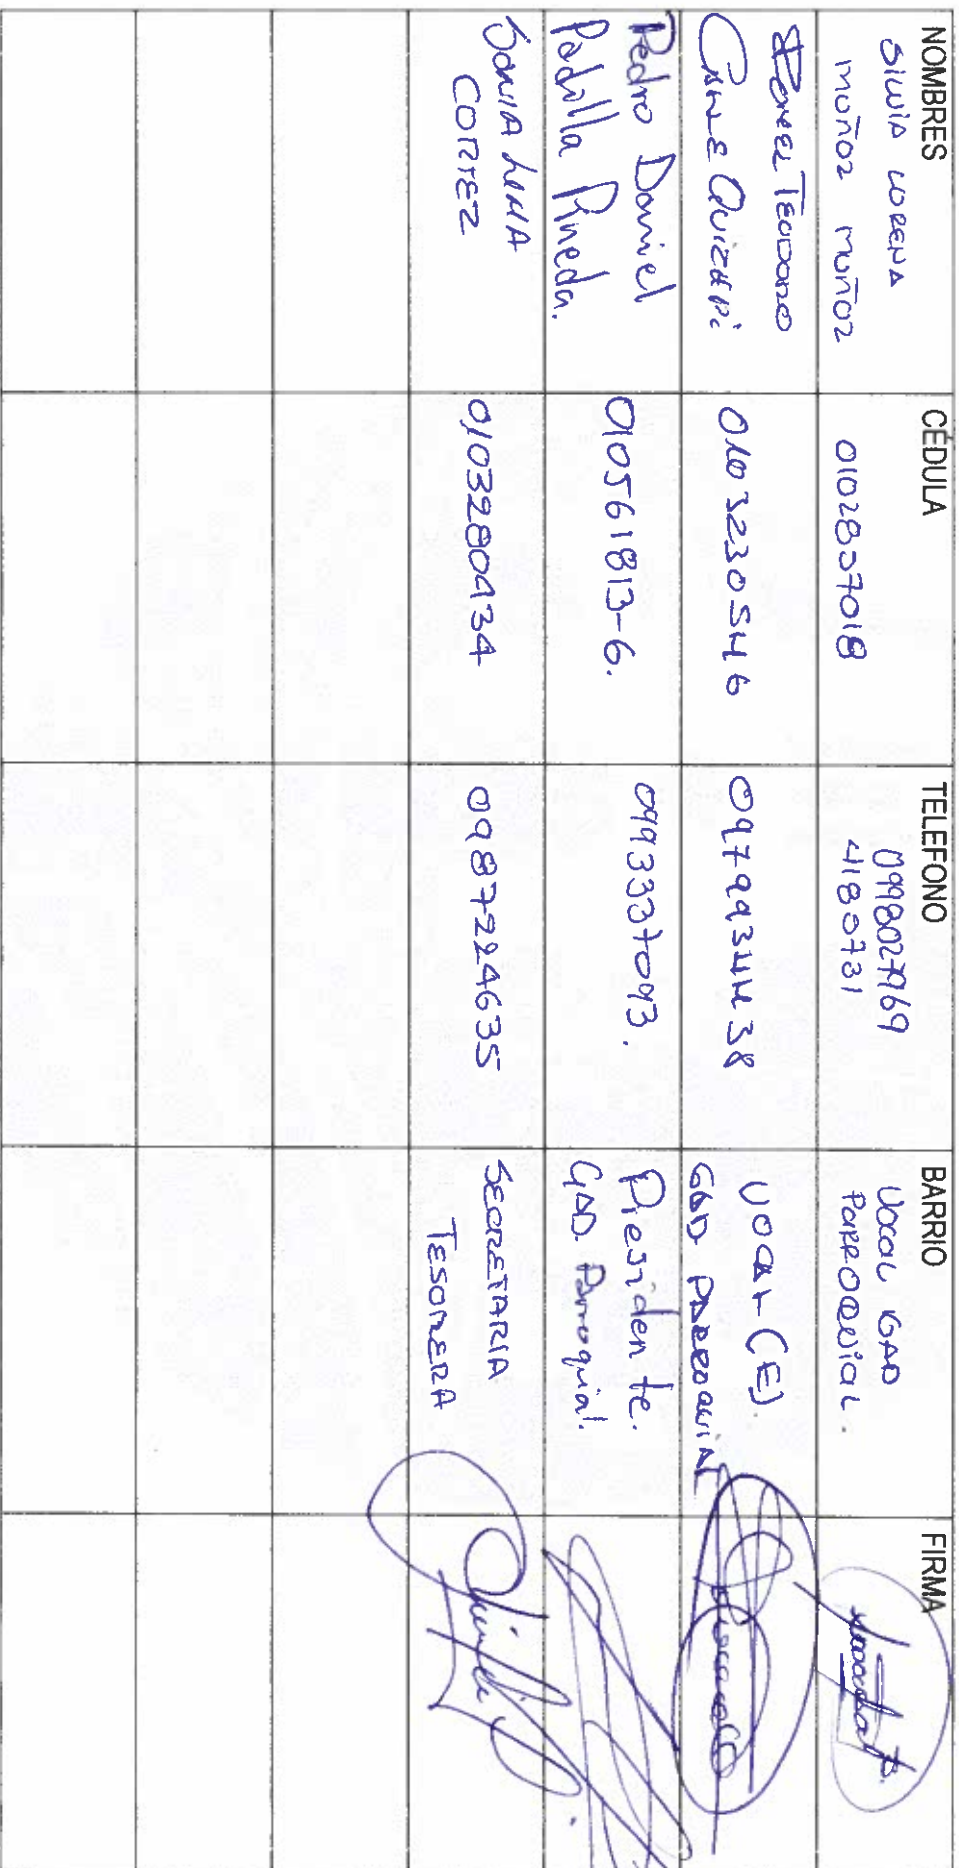 NOMBRES CÉDULA TELEFONO BARRIO FIRMA
SILVIA LORENA
MUÑOZ MUÑOZ
0102857018
0998027969
4180731
Vocal GAD
PARROQUIAL.
TEODORO
0103230546
0979934438
VOCAL (E).
GAD PARROQUIAL
Pedro Daniel
Padilla Pineda.
010561813-6.
0993337093.
Presidente.
GAD Parroquial.
SONIA LIMA
CORTEZ
0103280434
0987224635
SECRETARIA
TESORERA